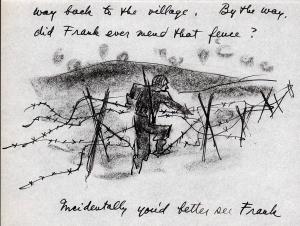 way back to the village. By the way,
did Frank ever mend that fence?
Incidentally you'd better see Frank